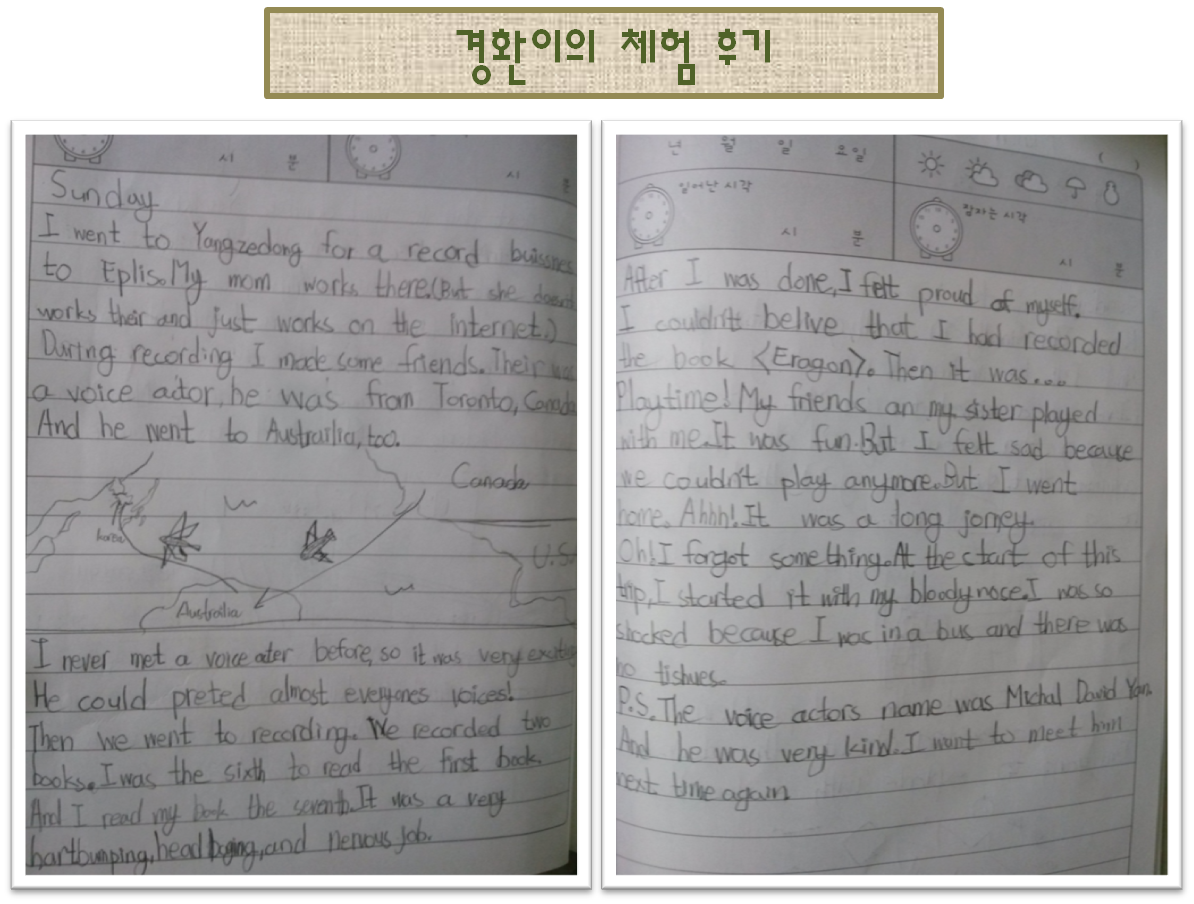 경환이의 체험 후기
시 분
시 분
Sunday
I went to Yangzedong for a record buissnes
to Eplis. My mom works there.(But she doesn't
works their and just works on the Internet.)
During recording I made some friends. Their was
a voice actor, he was from Toronto, Canada
And he went to Austrailia, too.
Canada
korea
U.S.
Austrailia
I never met a voice ater before, so it was very exciting
He could preted almost everyones voices!
Then we went to recording. We recorded two
books. I was the sixth to read the first book.
And I read my book the seventh. It was a very
hartbumping, head buging, and nervous job.
년 월 일 요일 ( )
일어난 시각
잠자는 시각
시 분
시 분
After I was done, I felt proud of myself.
I couldn't belive that I had recorded
the book <Eragon>. Then it was....
Playtime! My friends an my sister played
with me. It was fun. But I felt sad because
we couldn't play anymore. But I went
home. Ahhh! It was a long jorney.
Oh! I forgot something. At the start of this
trip, I started it with my bloody nose. I was so
shocked because I was in a bus and there was
no tishues.
P.S. The voice actors name was Michal David Yan.
And he was very kind. I want to meet him
next time again.